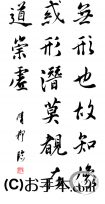 無形也故知像
或形潛莫覩在
道崇虛
(C)お手本